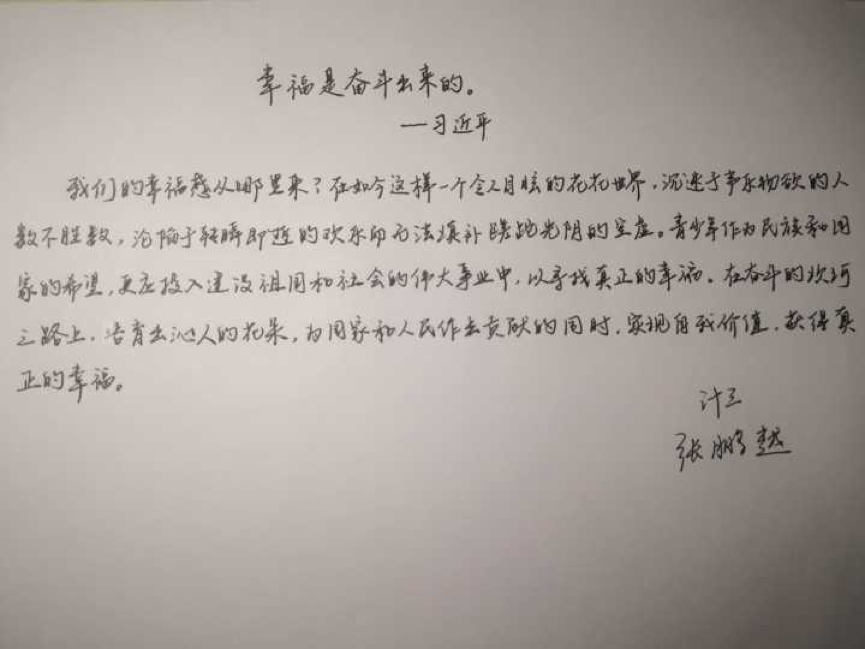 幸福是奋斗出来的。
—习近平
我们的幸福感从哪里来？在如今这样一个令人目眩的花花世界，沉迷于声乐物欲的人
数不胜数，沦陷于转瞬即逝的欢乐却无法填补蹉跎光阴的空虚。青少年作为民族和国
家的希望，更应投入建设祖国和社会的伟大事业中，以寻找真正的幸福。在奋斗的坎坷
之路上，培育出沁人的花朵，为国家和人民作出贡献的同时，实现自我价值，获得真
正的幸福。
计三
张鹏越